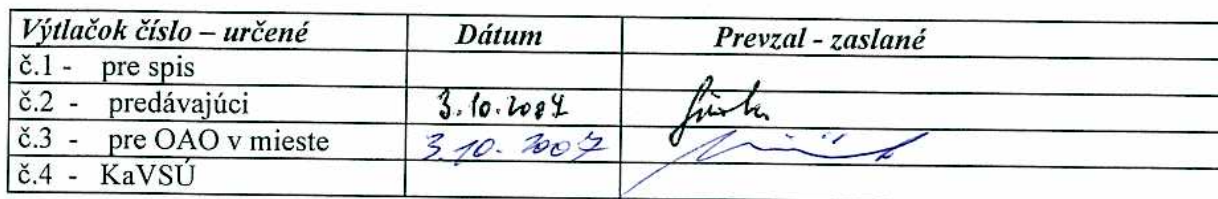 Výtlačok číslo – určené Dátum Prevzal - zaslané
č.1 - pre spis
č.2 - predávajúci 3.10.2007
č.3 - pre OAO v mieste 3.10.2007
č.4 - KaVSÚ